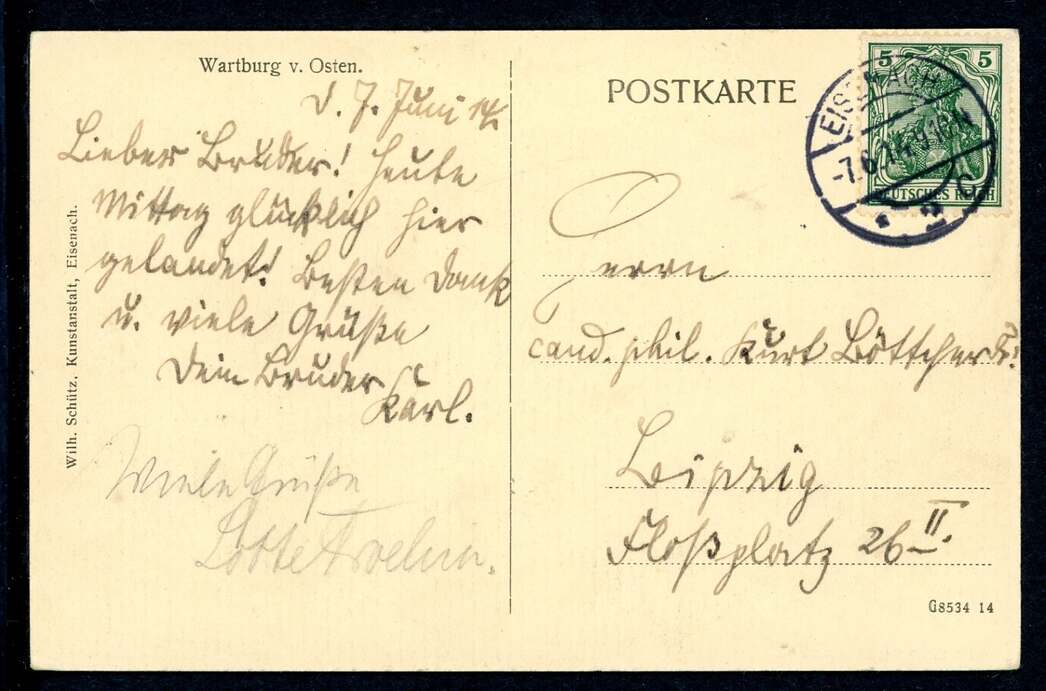 Wartburg v. Osten.
d. 7. Juni 14
Lieber Bruder! Heute
Mittag glücklich hier
gelandet! Besten Dank
u. viele Grüße
Dein Bruder
Karl.
Viele Grüße
Lotte
Wilh. Schütz, Kunstanstalt, Eisenach.
POSTKARTE
5 5
DEUTSCHES REICH
EISENACH
-7.6.14
* 2 c
Herrn
cand. phil. Kurt Böttcher
Leipzig
Floßplatz 26 II.
G8534 14